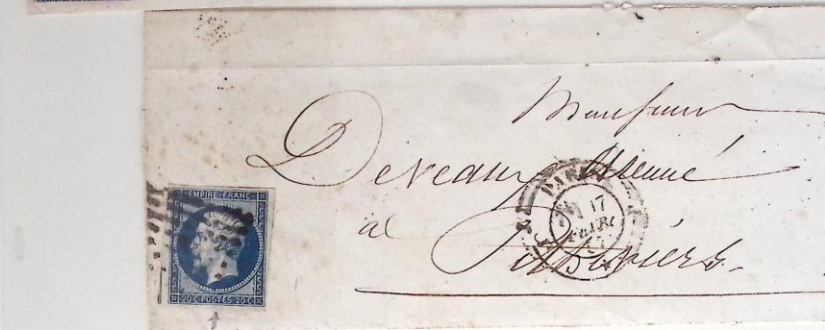 Monsieur
Deveaux
à Pithiviers
EMPIRE FRANC
20 C POSTES 20 C
PARIS
17